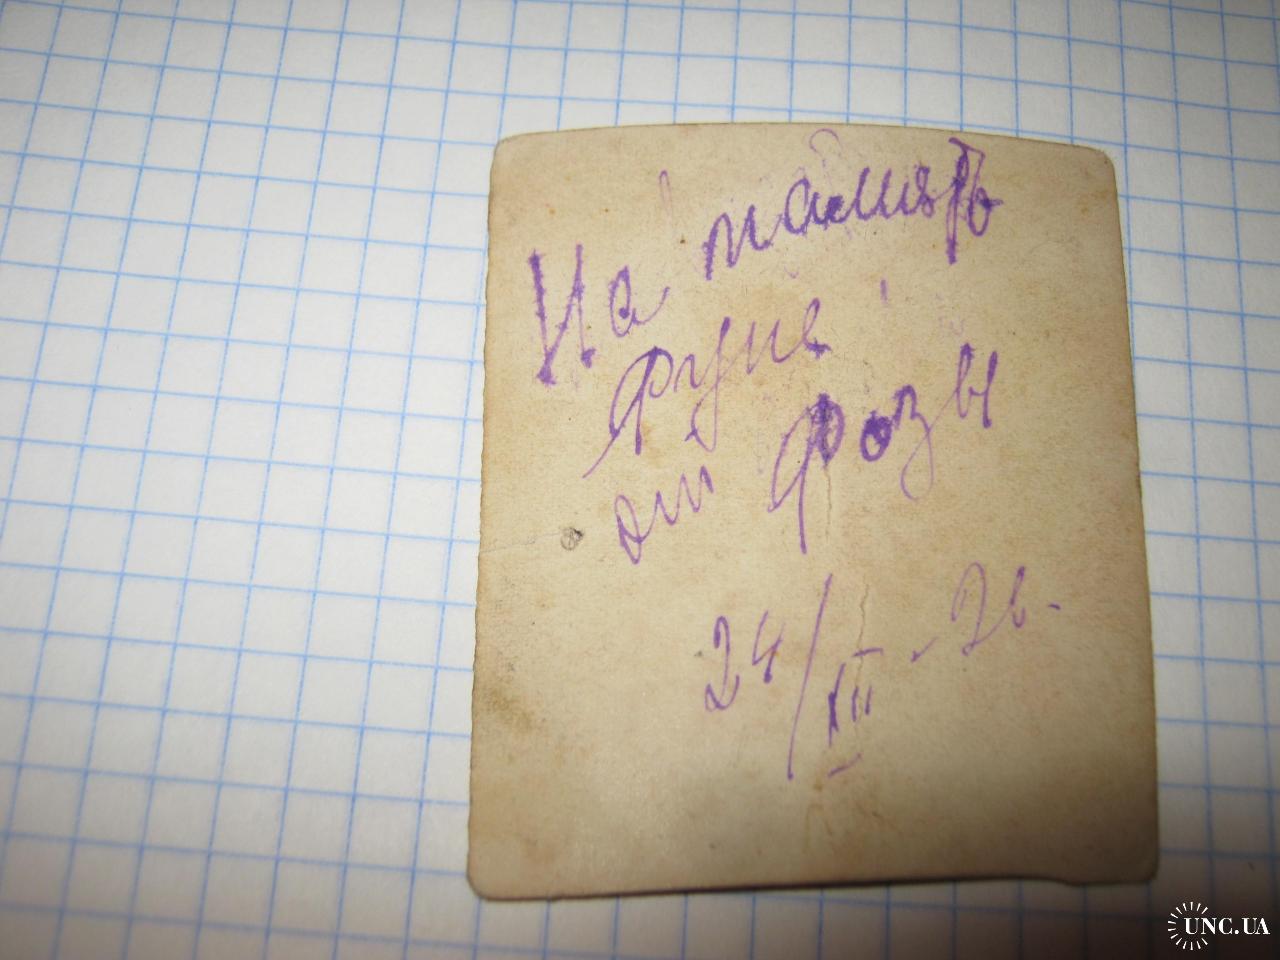 На память
Фуне
от Розы
24/XII - 26.
UNC.UA